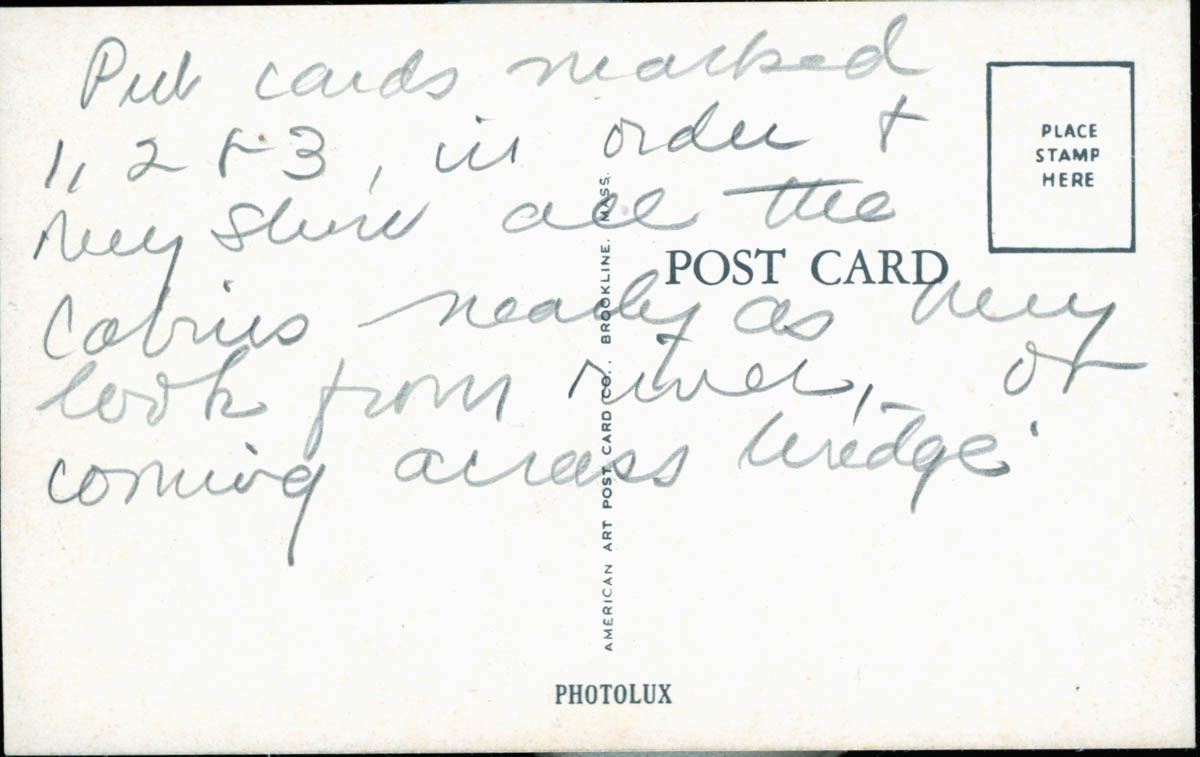 Put cards marked
1, 2 + 3, in order +
they show all the
Cabins nearly as they
look from river, or
coming across bridge.
PLACE
STAMP
HERE
POST CARD
AMERICAN ART POST CARD CO., BROOKLINE, MASS.
PHOTOLUX